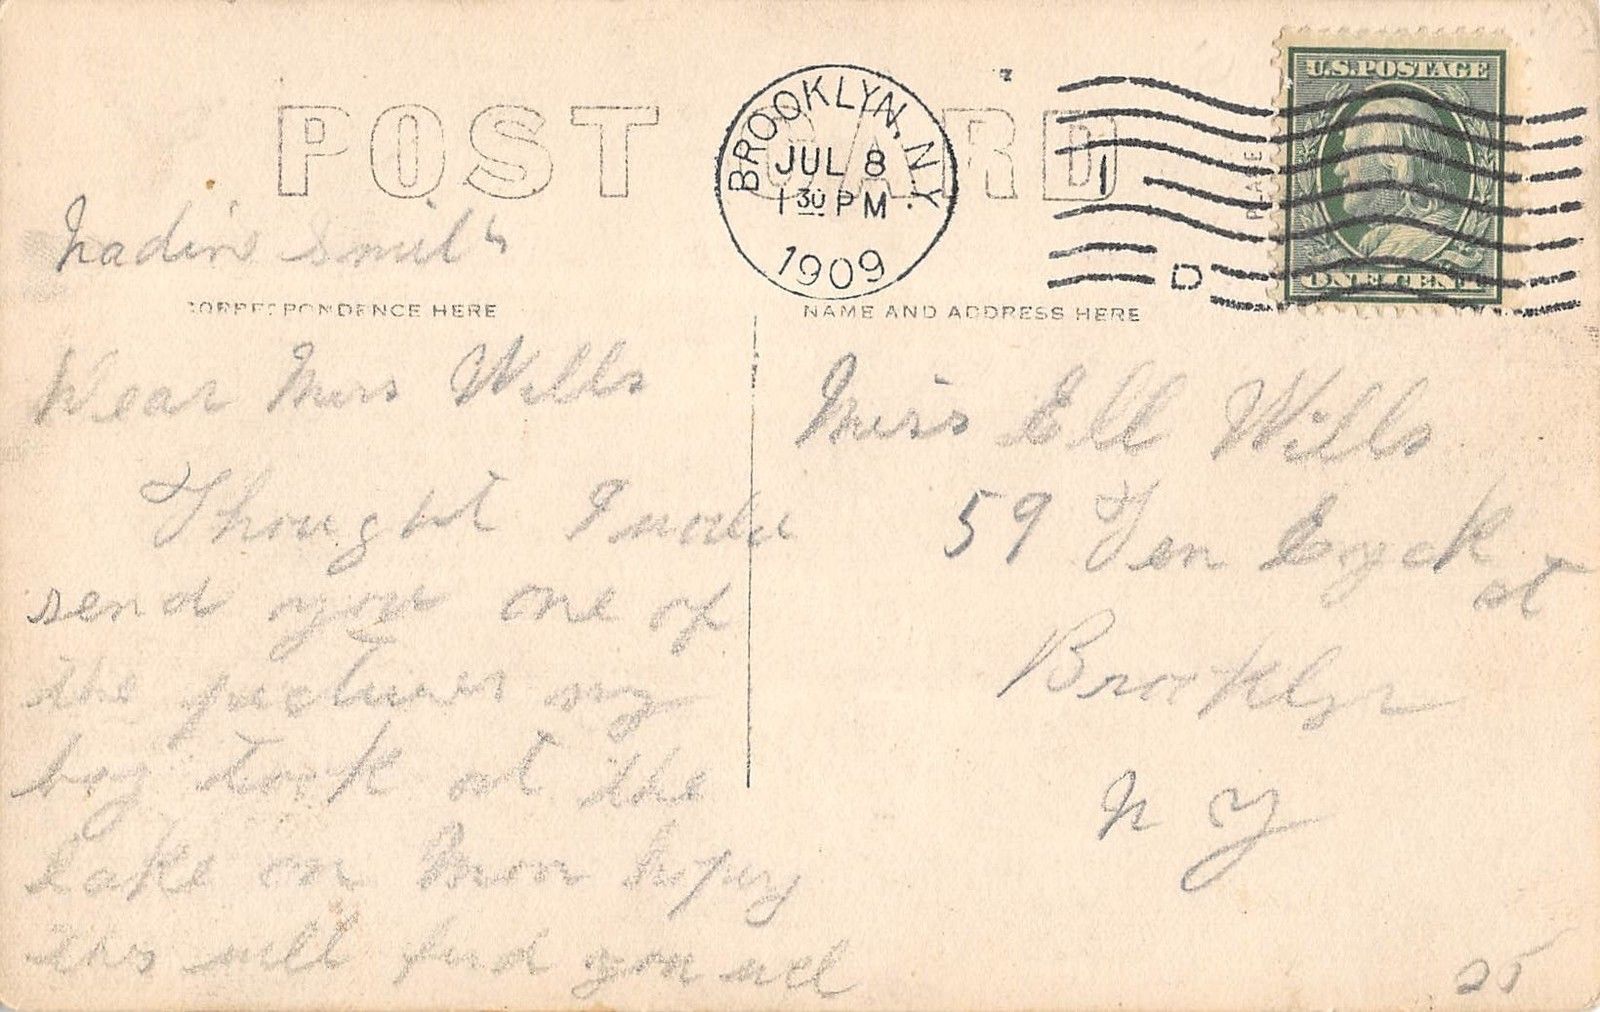 POST CARD
BROOKLYN, N.Y.
JUL 8
1 30 PM
1909
1
D
U.S. POSTAGE
ONE CENT
PLACE
Nadin Smith
CORRESPONDENCE HERE
Dear Miss Wills
Thought I
send you one of
the pictures my
boy took at the
lake on
this will find you well
NAME AND ADDRESS HERE
Miss Ell Wills
59 Ten Eyck
st
Brooklyn
N Y
25